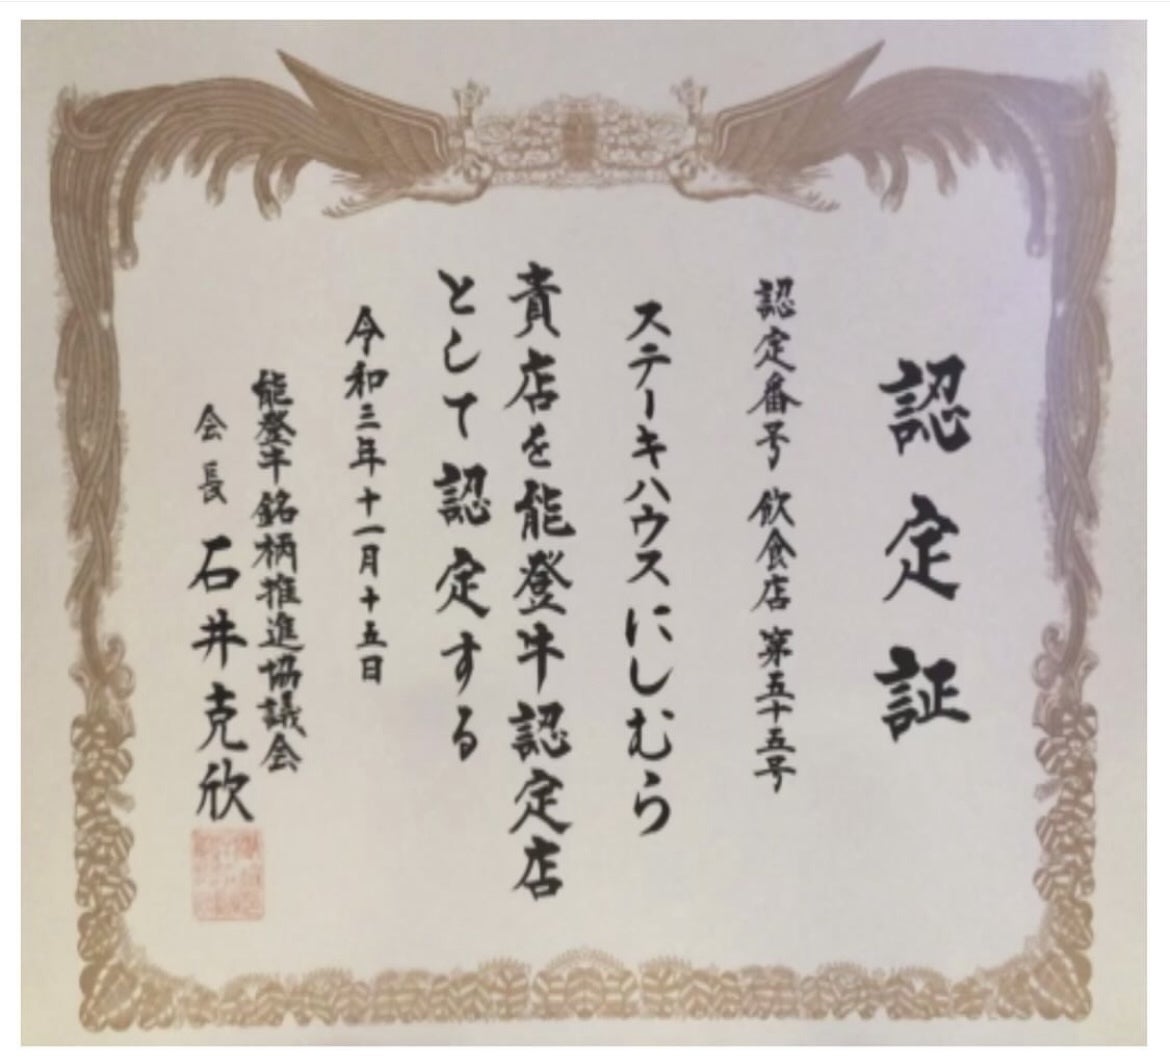 認定証
認定番号 飲食店 第五十五号
ステーキハウスにしむら
貴店を能登牛認定店
として認定する
令和三年十一月十五日
能登牛銘柄推進協議会
会長 石井克欣